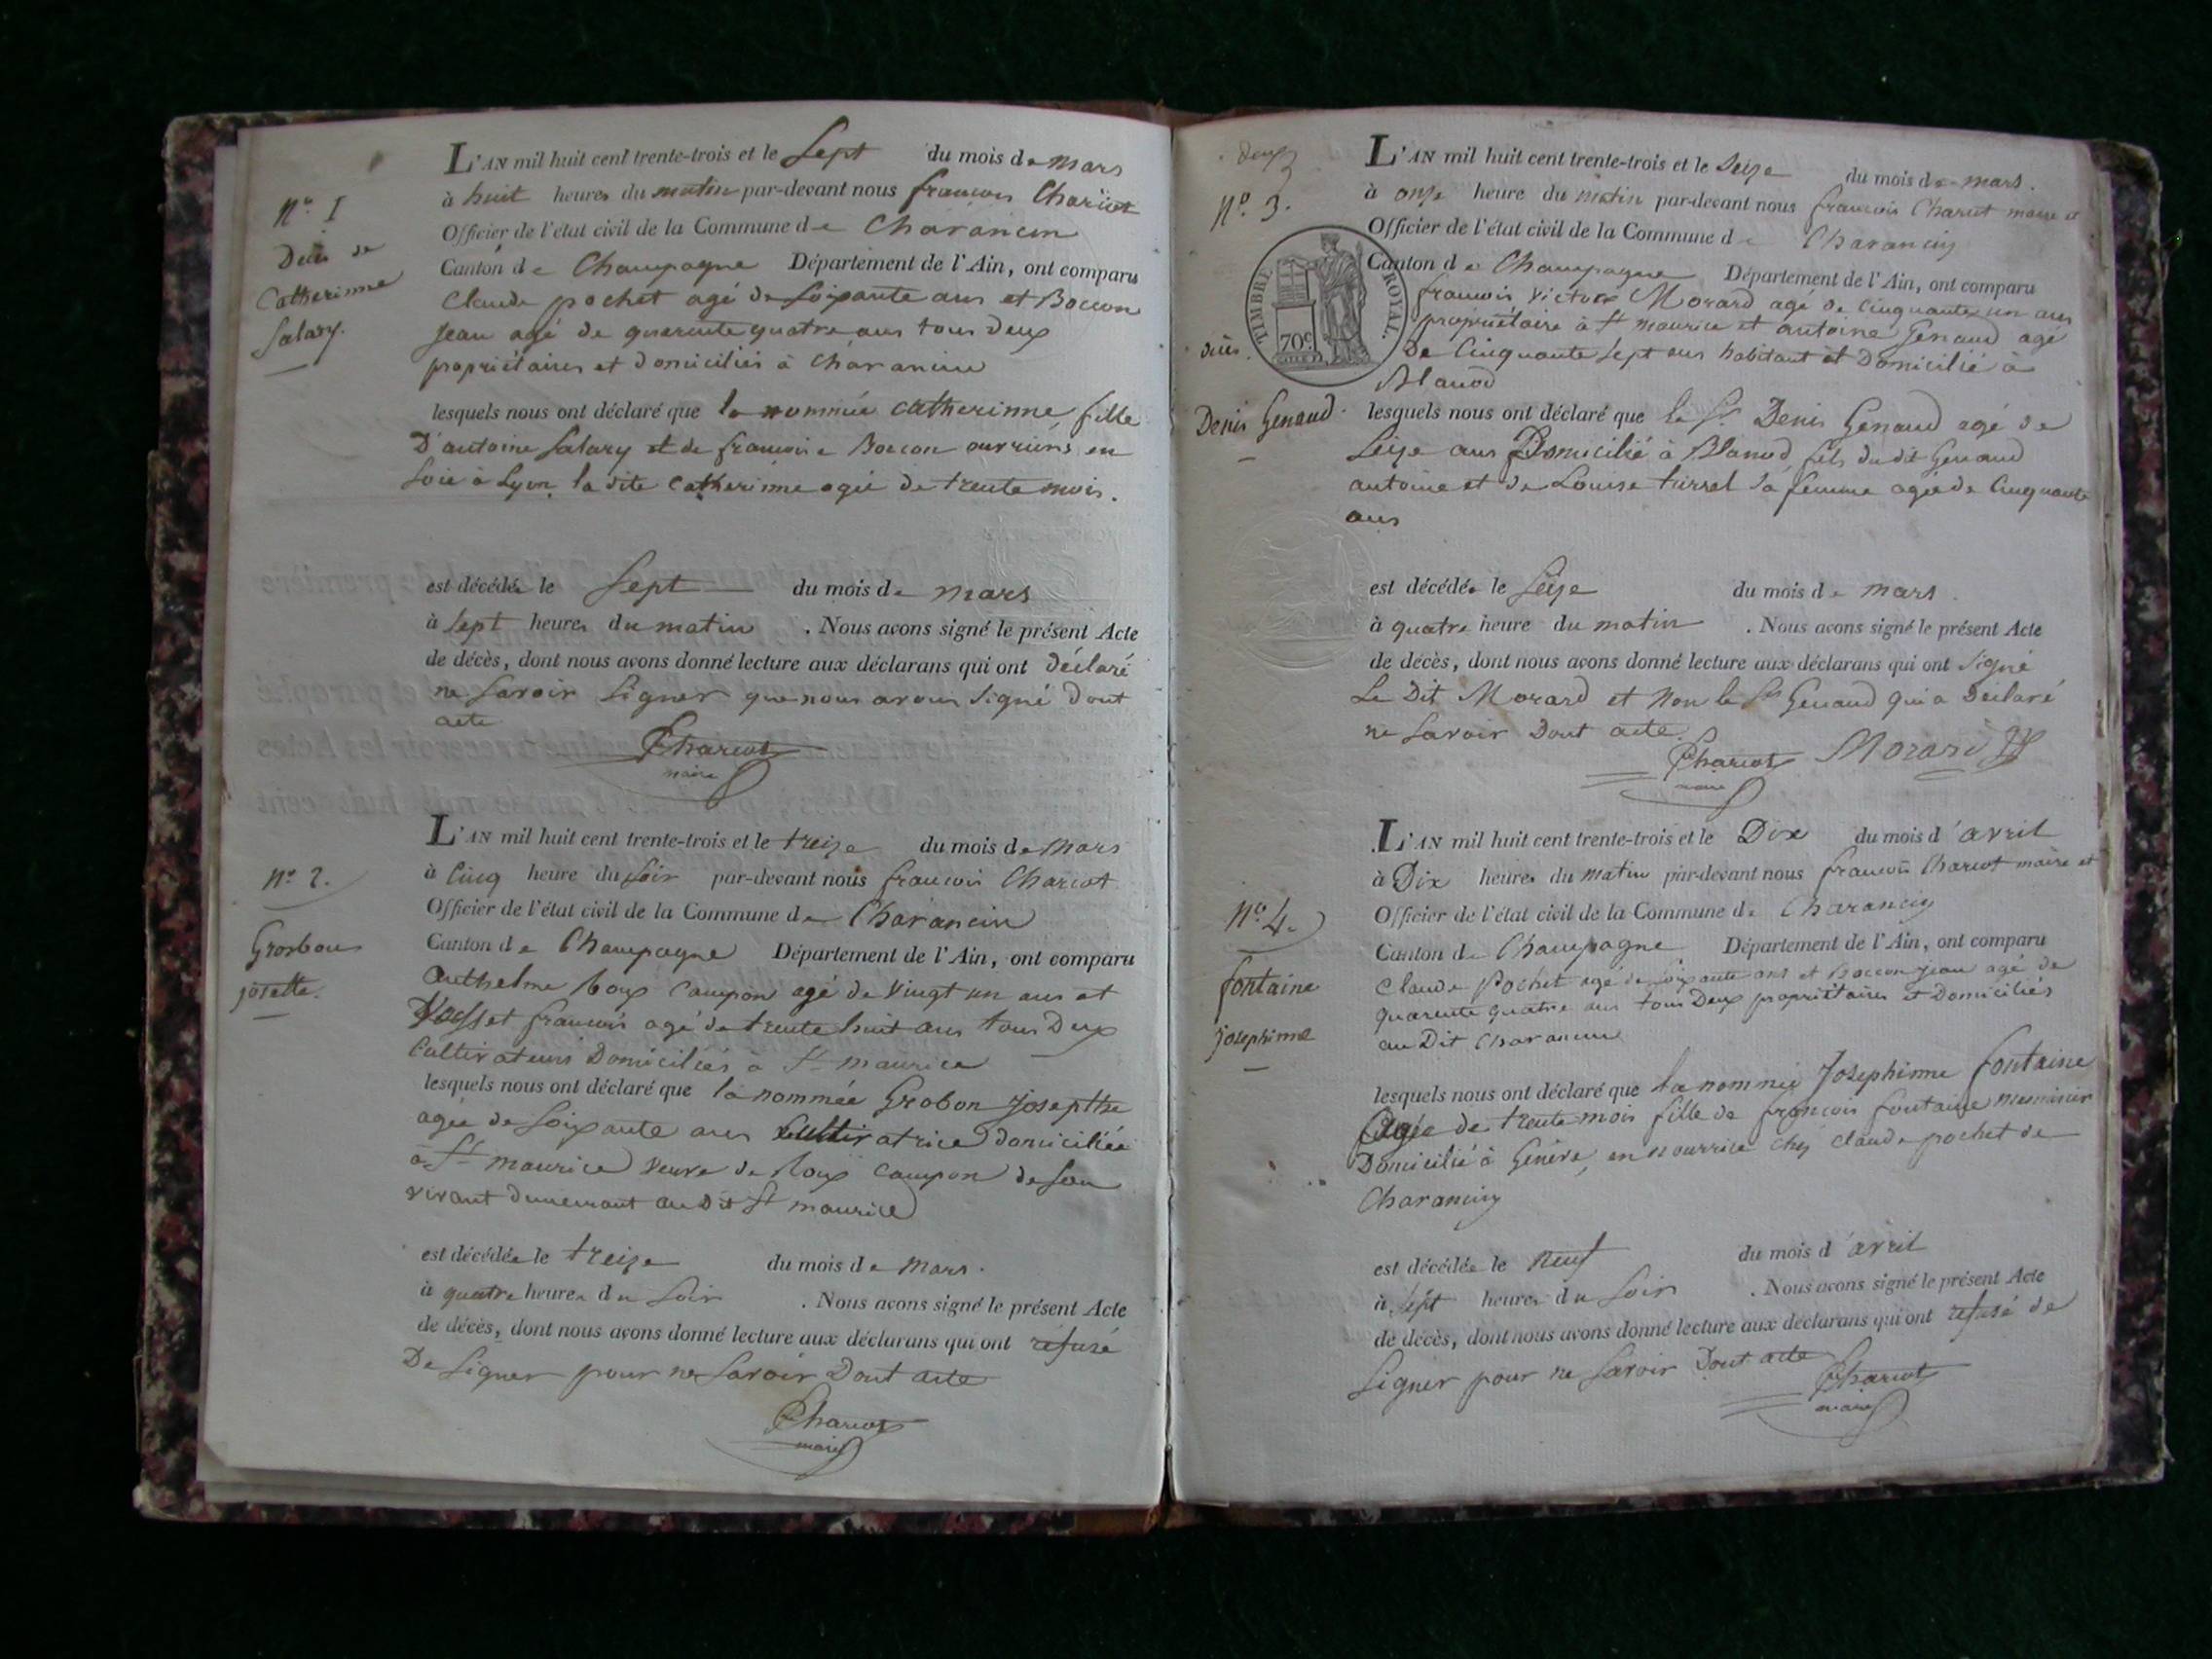 N.o I
Décès de
Catherinne
Salary.
L'AN mil huit cent trente-trois et le Sept du mois de mars
à huit heures du matin par-devant nous françois Chariot
Officier de l'état civil de la Commune de Charancin
Canton de Champagne Département de l'Ain, ont comparu
Claude pochet agé de Soixante ans et Boccon
Jean agé de quarente quatre ans tous deux
propriétaires et domiciliés à Charancin
lesquels nous ont déclaré que la nommée Catherinne fille
D'antoine Salary et de françoise Boccon ouvriérs en
Soie à Lyon la dite Catherinne agée de trente mois.
est décédée le Sept du mois de mars
à Sept heures du matin . Nous avons signé le présent Acte
de décès, dont nous avons donné lecture aux déclarans qui ont déclaré
ne Savoir Signer que nous avons Signé dont
acte
Chariot
maire
N.o 2.
Grosbon
josette.
L'AN mil huit cent trente-trois et le treize du mois de Mars
à Cinq heure du Soir par-devant nous françois Chariot
Officier de l'état civil de la Commune de Charancin
Canton de Champagne Département de l'Ain, ont comparu
Anthelme Roux Campon agé de vingt un ans et
françois agé de trente huit ans tous Deux
Cultivateurs Domiciliés à St maurice
lesquels nous ont déclaré que la nommée Grobon Josepthe
agée de Soixante ans Cultivatrice domiciliée
à St maurice veuve de Roux Campon de Son
vivant demeurant au Dit St maurice
est décédée le treize du mois de Mars.
à quatre heures du Soir . Nous avons signé le présent Acte
de décès, dont nous avons donné lecture aux déclarans qui ont réfusé
De Signer pour ne Savoir Dont acte
Chariot
maire
deux
N.o 3.
décès.
Denis Genaud.
TIMBRE ROYAL.
70c
L'AN mil huit cent trente-trois et le Seize du mois de mars.
à onze heure du matin par-devant nous françois Chariot maire et
Officier de l'état civil de la Commune de Charancin
Canton de Champagne Département de l'Ain, ont comparu
françois Victor Morard agé de Cinquante un ans
propriétaire à St maurice et antoine Genaud agé
De Cinquante Sept ans habitant et Domicilié à
Blanod
lesquels nous ont déclaré que le Sr Denis Genaud agé de
Seize ans Domicilié à Blanod fils du dit Genaud
antoine et de Louise Sa femme agée de Cinquante
ans
est décédée le Seize du mois de mars.
à quatre heure du matin . Nous avons signé le présent Acte
de décès, dont nous avons donné lecture aux déclarans qui ont Signé
Le Dit Morard et Non le Sr Genaud qui a Déclaré
ne Savoir Dont acte.
Chariot Morard
maire
N.o 4.
fontaine
josephinne
L'AN mil huit cent trente-trois et le Dix du mois d'avril
à Dix heures du matin par-devant nous françois Chariot maire et
Officier de l'état civil de la Commune de Charancin
Canton de Champagne Département de l'Ain, ont comparu
Claude Pochet agé de Soixante ans et Boccon jean agé de
quarente quatre ans tous Deux propriétaires et Domiciliés
au Dit Charancin
lesquels nous ont déclaré que la nommée Josephinne fontaine
Agée de trente mois fille de françois fontaine menuisier
Domicilié à Genève, en nourrice chez Claude pochet de
Charancin
est décédée le neuf du mois d'avril
à Sept heures du Soir . Nous avons signé le présent Acte
de décès, dont nous avons donné lecture aux déclarans qui ont refusé de
Signer pour ne Savoir Dont acte
Chariot
maire